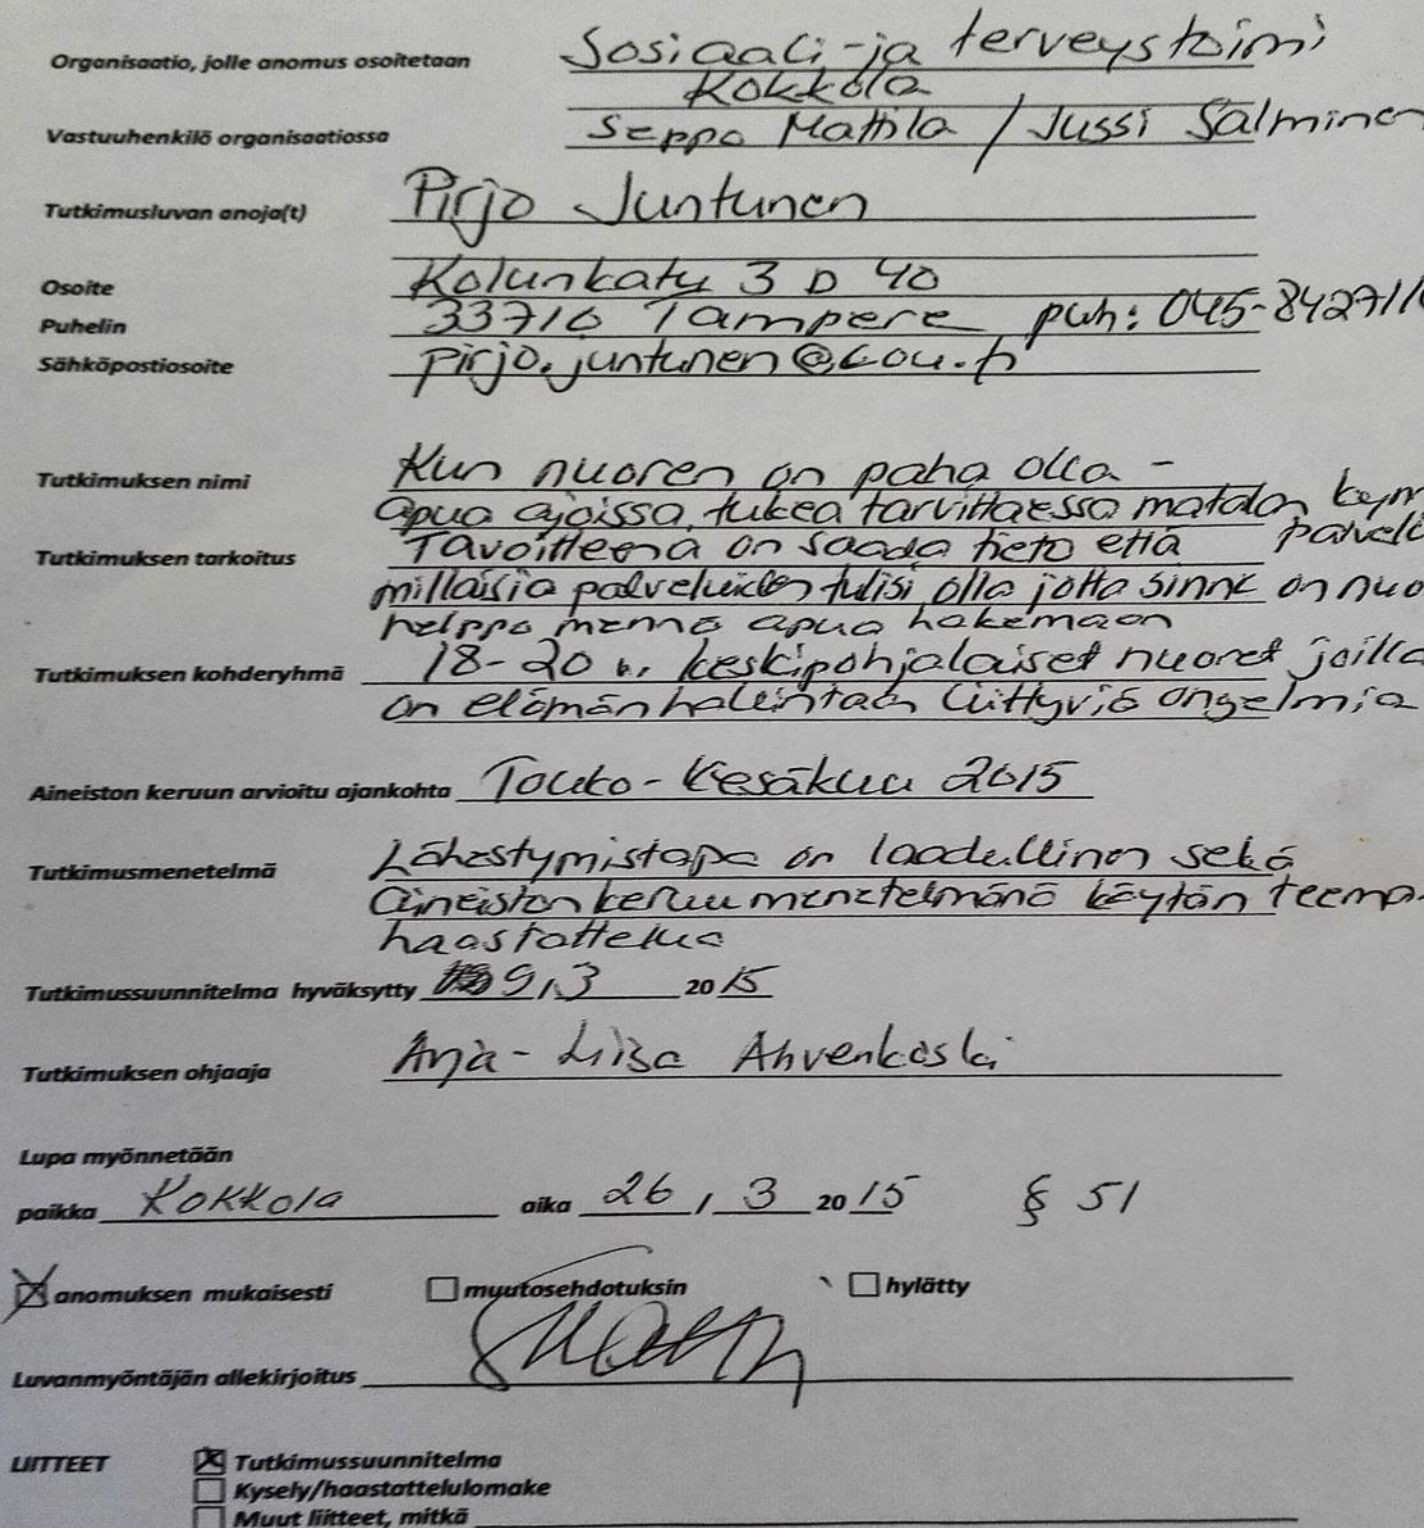 Organisaatio, jolle anomus osoitetaan Sosiaali-ja terveystoimi
Kokkola
Vastuuhenkilö organisaatiossa Seppo Mattila / Jussi Salminen
Tutkimusluvan anoja(t) Pirjo Juntunen
Osoite Kolunkatu 3 D 40
Puhelin 33710 Tampere puh: 045-842711
Sähköpostiosoite pirjo.juntunen@cou.fi
Tutkimuksen nimi Kun nuoren on paha olla -
apua ajoissa, tukea tarvittaessa matalan kynn
Tutkimuksen tarkoitus Tavoitteena on saada tieto että palvelu
millaisia palveluiden tulisi olla jotta sinne on nuo
helppo mennä apua hakemaan
Tutkimuksen kohderyhmä 18-20 v. keskipohjalaiset nuoret joilla
on elämänhallintaan liittyviä ongelmia
Aineiston keruun arvioitu ajankohta Touko-Kesäkuu 2015
Tutkimusmenetelmä Lähestymistapa on laadullinen sekä
Aineiston keruumenetelmänä käytän teema-
haastattelua
Tutkimussuunnitelma hyväksytty 9,3 2015
Tutkimuksen ohjaaja Arja-Liisa Ahvenkoski
Lupa myönnetään
paikka Kokkola aika 26, 3 2015 § 51
anomuksen mukaisesti muutosehdotuksin hylätty
Luvanmyöntäjän allekirjoitus
LIITTEET Tutkimussuunnitelma
Kysely/haastattelulomake
Muut liitteet, mitkä